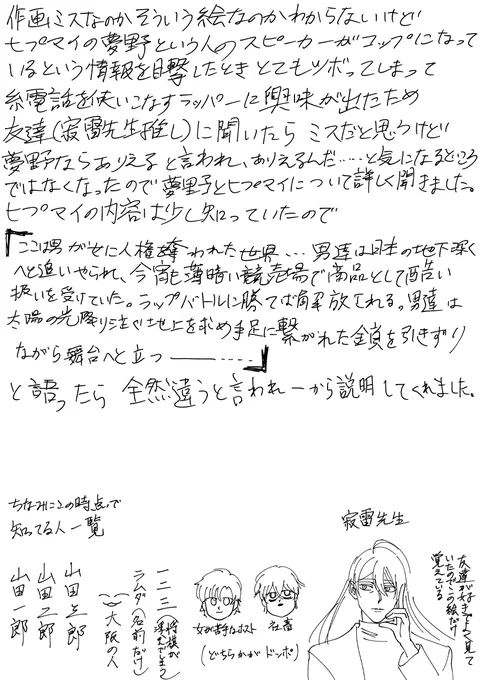 作画ミスなのかそういう絵なのかわからないけど
ヒプマイの夢野という人のスピーカーがコップになって
いるという情報を目撃したときとてもツボってしまって
糸電話を使いこなすラッパーに興味が出たため
友達(寂雷先生推し)に聞いたらミスだと思うけど
夢野ならありえると言われ、ありえるんだ……と気になるどころ
ではなくなったので夢野とヒプマイについて詳しく聞きました。
ヒプマイの内容は少し知っていたので
『ここは男が女に人権奪われた世界…男達は日本の地下深く
へと追いやられ、今宵も薄暗い競売場で商品として酷い
扱いを受けていた。ラップバトルに勝てば解放される。男達は
太陽の光降り注ぐ地上を求め手足に繋がれた鎖を引きずり
ながら舞台へと立つ――――…』
と語ったら全然違うと言われ一から説明してくれました。
ちなみにこの時点で
知ってる人一覧
山田三郎
山田二郎
山田一郎
一二三(将棋が浮かんでしまう)
ラムダ(名前だけ)
大阪の人
女が苦手なホスト
社畜
(どちらかがドッポ)
寂雷先生
友達が好きでよく見て
いたのでこの絵だけ
覚えている